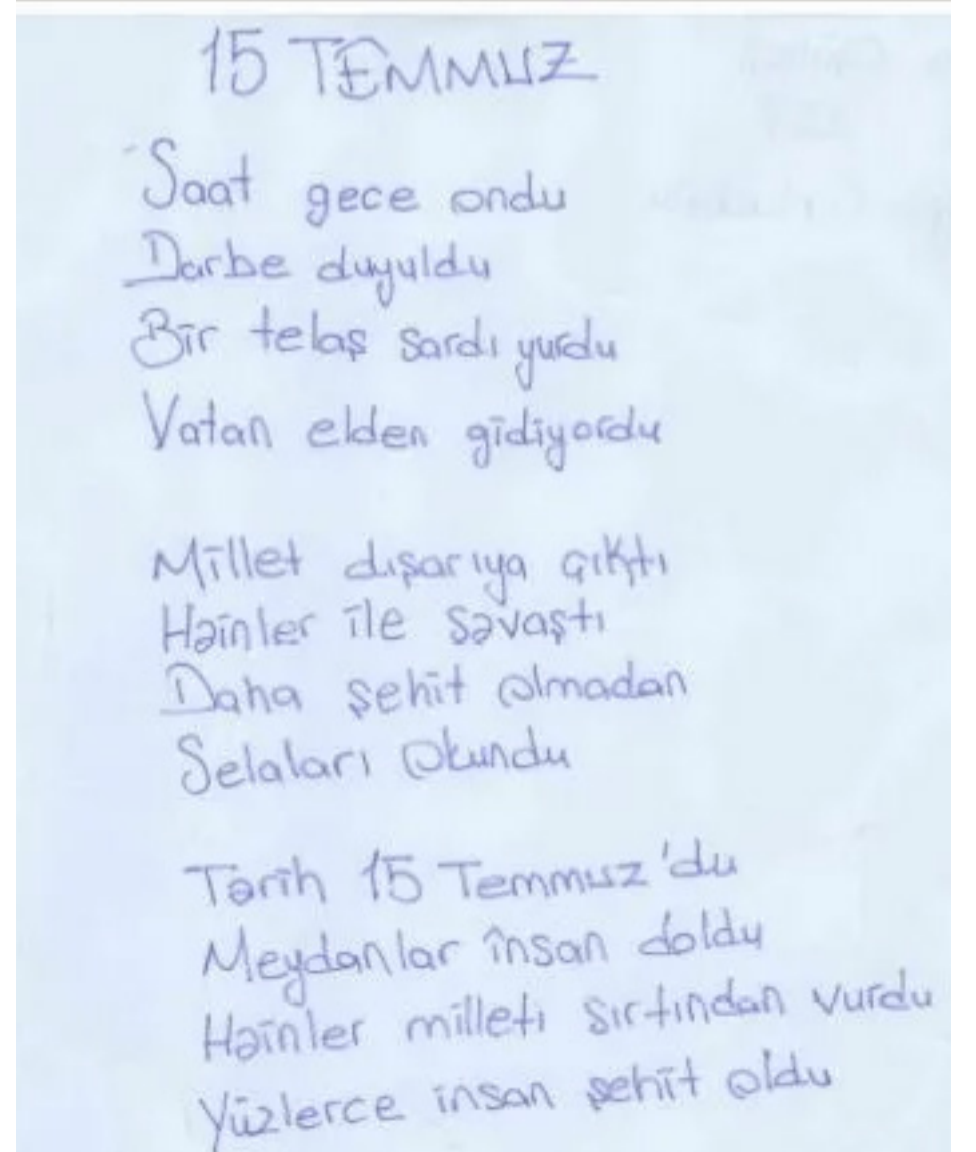 15 TEMMUZ
Saat gece ondu
Darbe duyuldu
Bir telaş sardı yurdu
Vatan elden gidiyordu
Millet dışarıya çıktı
Hainler ile savaştı
Daha şehit olmadan
Selaları okundu
Tarih 15 Temmuz'du
Meydanlar insan doldu
Hainler milleti sırtından vurdu
Yüzlerce insan şehit oldu